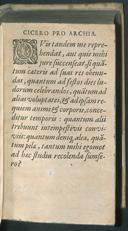 CICERO PRO ARCHIA.
QVis tandem me repre-
hendat, aut quis mihi
iure succenseat, si quā-
tum cæteris ad suas res obeun-
das, quantum ad festos dies lu-
dorum celebrandos, quātum ad
alias voluptates, & ad ipsam re-
quiem animi & corporis, conce-
ditur temporis: quantum alij
tribuunt intempestiuis conui-
uijs: quantum denique aleæ, quā-
tum pilæ, tantum mihi egomet
ad hæc studia recolenda sumpse-
ro?